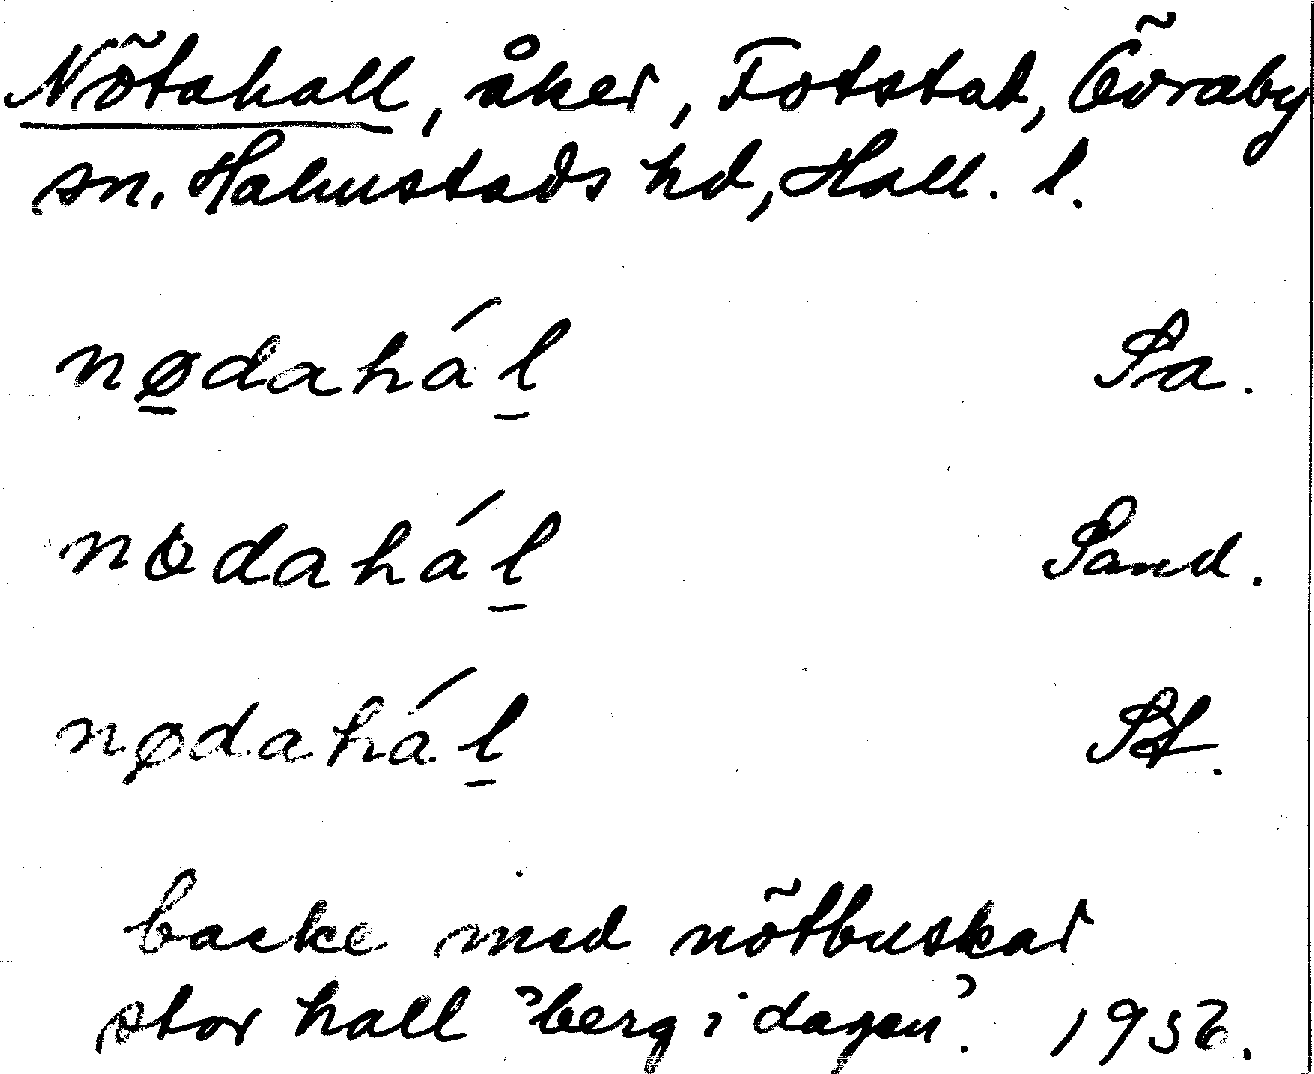 Nötahall, åker, Fotstad, Övraby
sn. Halmstads hd, Hall. l.
nø̲dahál̲ Sa.
nødahál̲ Sand.
nødahál̲ St.
backe med nötbuskar
stor hall "berg i dagen". 1936.